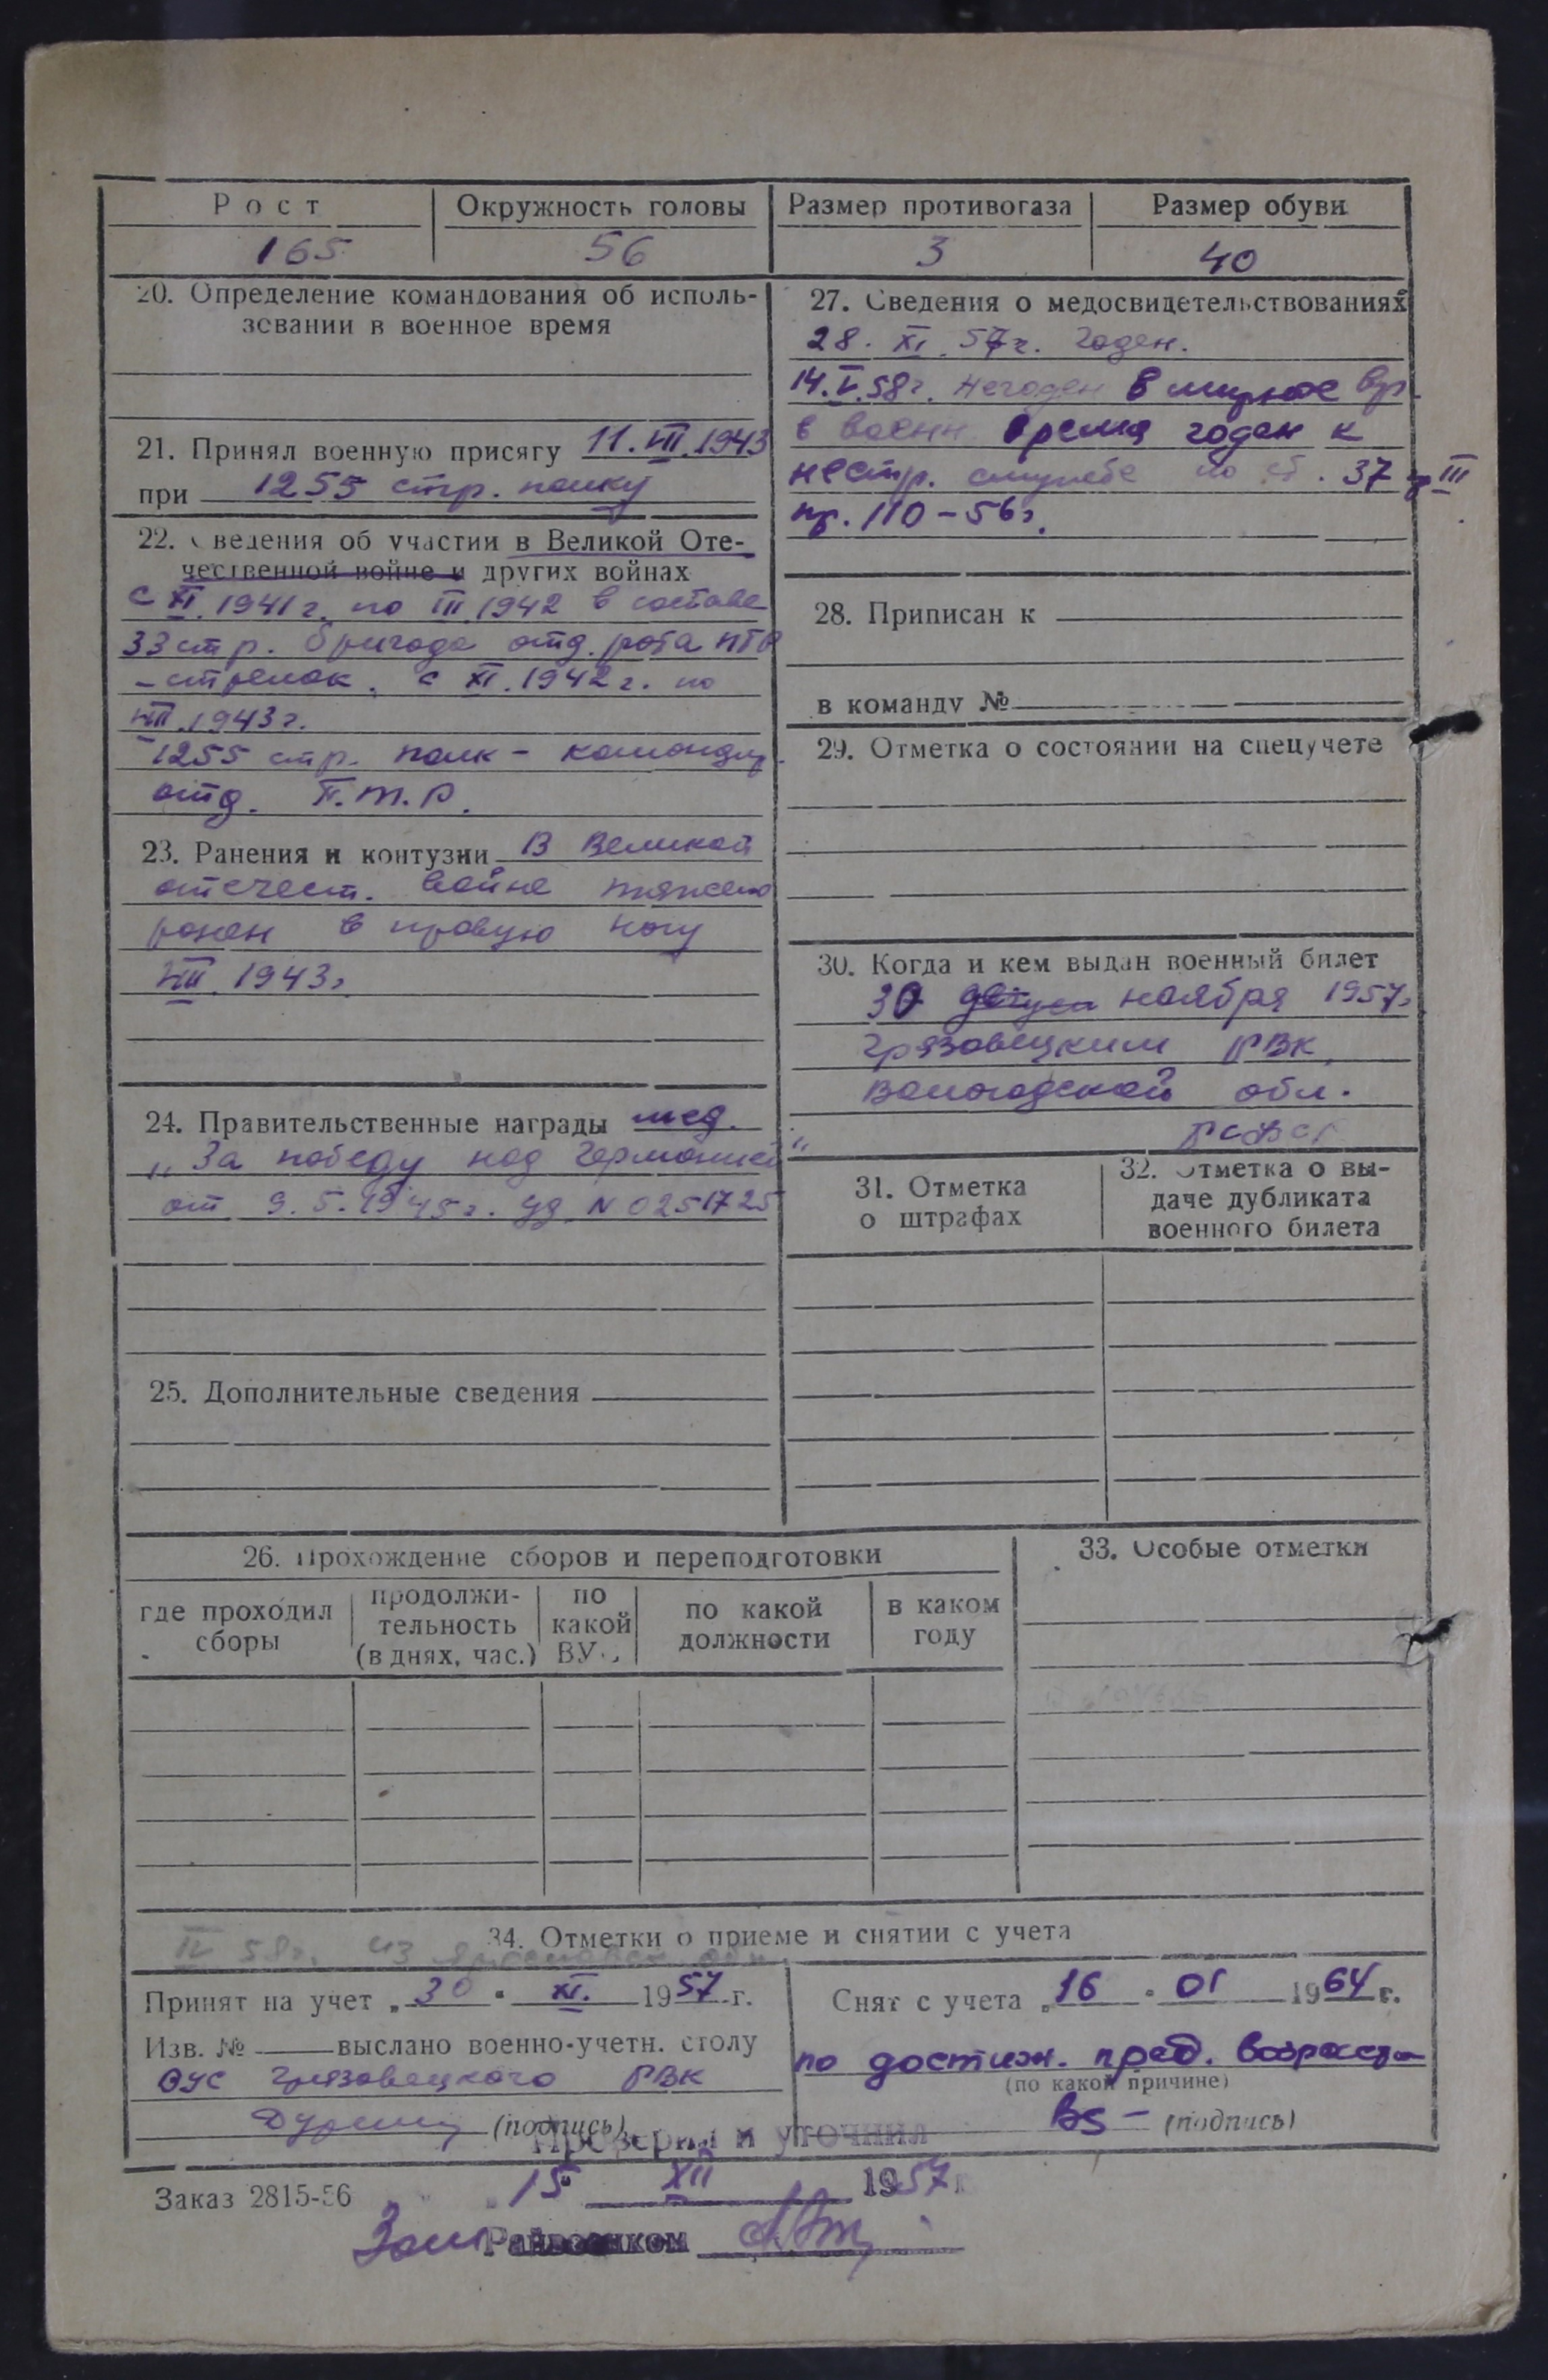 Рост
Окружность головы
Размер противогаза
Размер обуви
165
56
3
40
20. Определение командования об исполь-
зовании в военное время
21. Принял военную присягу 11.VII.1943
при 1255 стр. полку
22. Сведения об участии в Великой Оте-
чественной войне и других войнах
с XI.1941г. по III.1942 в составе
33 стр. бригада отд. рота ПТР
-стрелок. с XI.1942г. по
VIII.1943г.
1255 стр. полк - командир
отд. П.Т.Р.
23. Ранения и контузии В Великой
отечест. войне тяжело
ранен в правую ногу
VIII 1943г.
24. Правительственные награды мед.
„За победу над Германией"
от 9.5.1945г. уд N 0251725
25. Дополнительные сведения
27. Сведения о медосвидетельствованиях
28. XI. 57г. Годен.
14.V.58г. Негоден в мирное вр.
в военн время годен к
нестр. службе по ст. 37 гр III
пр. 110-56г.
28. Приписан к
в команду №
29. Отметка о состоянии на спецучете
30. Когда и кем выдан военный билет
30 ноября 1957г
Грязовецким РВК,
Вологодской обл.
РСФСР
31. Отметка
о штрафах
32. Отметка о вы-
даче дубликата
военного билета
26. Прохождение сборов и переподготовки
где проходил
сборы
продолжи-
тельность
(в днях, час.)
по
какой
ВУС
по какой
должности
в каком
году
33. Особые отметки
34. Отметки о приеме и снятии с учета
IV 58г. из Ярославск обл.
Принят на учет „30" XI. 1957 г.
Изв. № выслано военно-учетн. столу
ОУС Грязовецкого РВК
(подпись)
Снят с учета „16" 01 1964 г.
по достиж. пред. возраста
(по какой причине)
(подпись)
Проверил и уточнил
Заказ 2815-56
15 XII 1957г
Зам Райвоенком